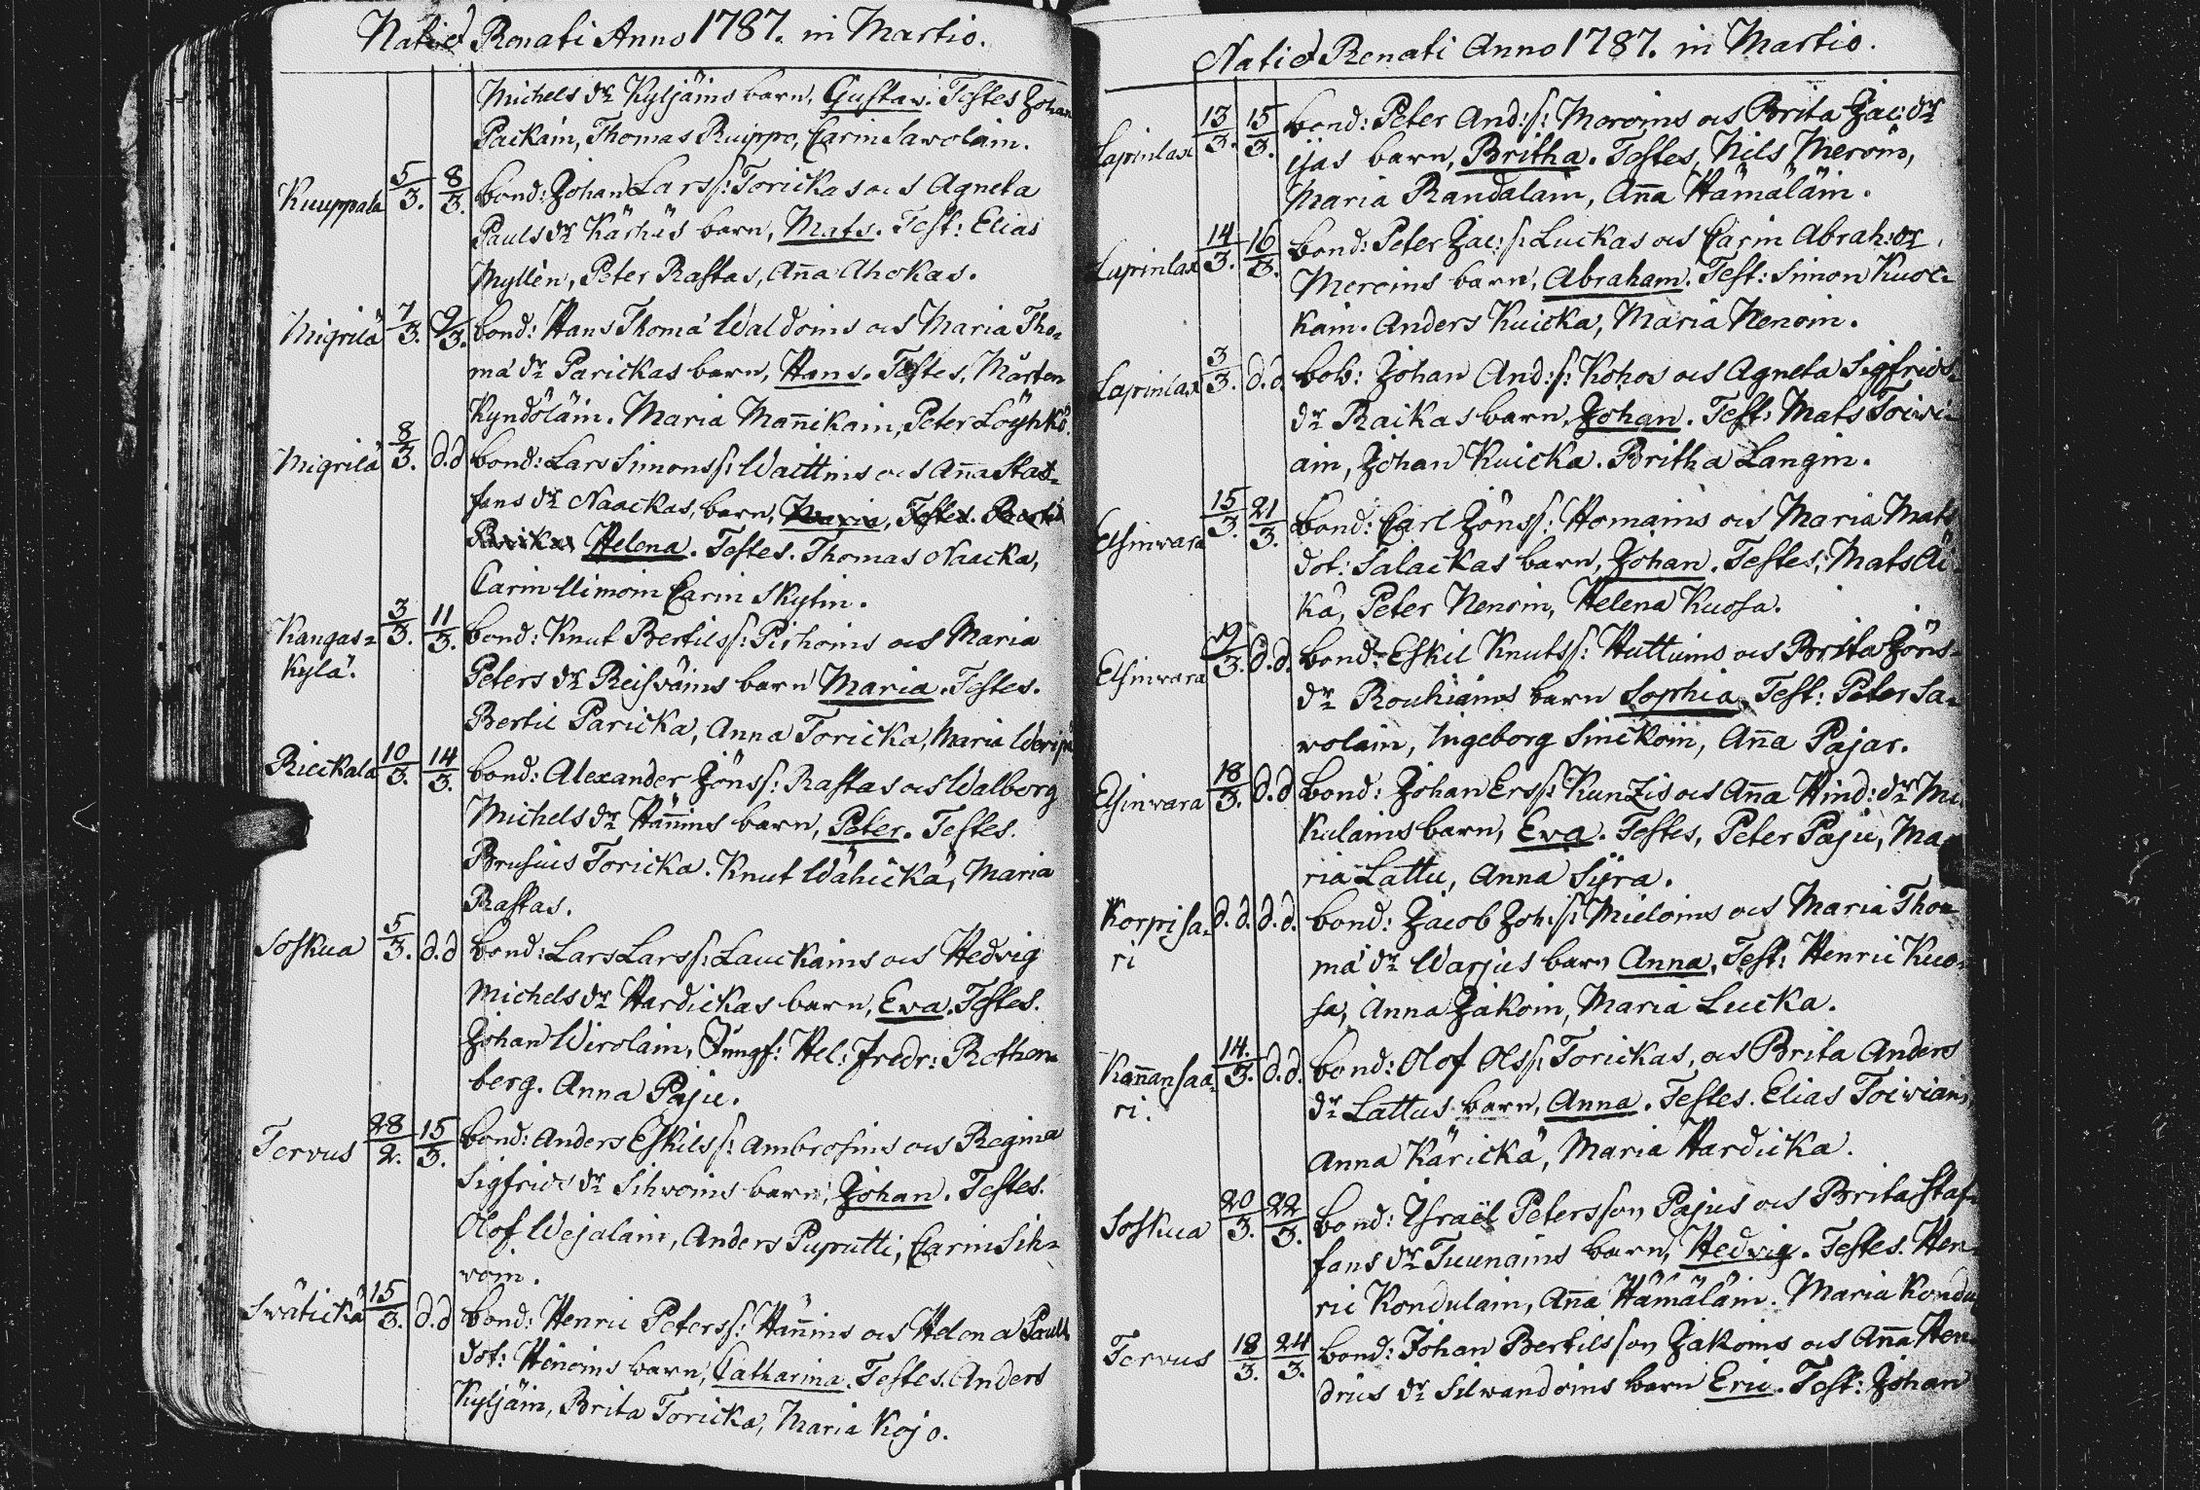 Nati et Renati Anno 1787. in Martio.
Michels dr Kyljäins barn, Gustav. Testes Johan
Packain, Thomas Ruippo, Carin Sawolain.
Kuuppala 5/3. 8/3. bond: Johan Larss: Torickas och Agneta
Pauls dr Kärhäs barn, Mats. Test: Elias
Myllen, Peter Rastas, Aña Ahokas.
Migrilä 7/3. 9/3. bond: Hans Thomä Waldoins och Maria Tho-
mä dr Parickas barn, Hans. Testes, Mårten
Kyndöläin. Maria Mañikain, Peter Löyhkö.
Migrilä 8/3. d.d bond: Lars Simonss: Waittins och Aña Staf-
fans dr Naackas, barn, Maria, Testes.
Helena. Testes. Thomas Naacka,
Carin Uimoin Carin Skytin.
Kangas- 3/3. 11/3. bond: Knut Bertilss: Pirhoins och Maria
kylä. Peters dr Reisväins barn Maria. Testes.
Bertil Paricka, Anna Toricka, Maria
Rieckala 10/3. 14/3. bond: Alexander Jönss: Rastas och Walborg
Michels dr Häñins barn, Peter. Testes.
Brusius Toricka. Knut Wähickä, Maria
Rastas.
Soskua 5/3. d.d bond: Lars Larss: Lauckains och Hedvig
Michels dr Hardickas barn, Eva. Testes.
Johan Wirolain, Jungf: Hel: Fredr: Rothen-
berg. Anna Paju.
Tervus 28/2. 15/3. bond: Anders Eskilss: Ambrosius och Regina
Sigfrids dr Sihvoins barn, Johan. Testes.
Olof Wejalain, Anders Puputti, Carin Sih-
voin.
Swätickä 15/3. d.d bond: Henric Peterss: Häñins och Helena Pauls
dot: Heinoins barn, Catharina. Testes. Anders
Kyljäin, Brita Toricka, Maria Kojo.
Nati et Renati Anno 1787. in Martio.
Lapinlax 13/3. 15/3. bond: Peter And: s: Meroins och Brita Zac: dr
ijas barn, Britha. Testes, Nils Meroin,
Maria Randalain, Aña Hämäläin.
Lapinlax 14/3. 16/3. bond: Peter Zac: s: Luckas och Carin Abrah: dr
Meroins barn, Abraham. Test: Simon Kuoc-
kain. Anders Kuicka, Maria Nenoin.
Lapinlax 3/3. d.d. bob: Johan And: s: Kohos och Agneta Sigfrids-
dr Raikas barn, Johan. Test: Mats Toivi-
ain, Johan Kuicka. Britha Langin.
Elsinvara 15/3. 21/3. bond: Carl Jönss: Homains och Maria Mats
dot: Salackas barn, Johan. Testes, Mats Äi-
kä, Peter Nenoin, Helena Kuosa.
Elsinvara 19/3. d.d. bond: Eskil Knutss: Huttuins och Brita Jöns-
dr Rouhiains barn Sophia. Test: Peter Sa-
volain, Ingeborg Sinckoin, Aña Pajar.
Elsinvara 18/3. d.d bond: Johan Erss: Kunzis och Aña Hind: dr Mi-
kulains barn, Eva. Testes, Peter Paju, Ma-
ria Lattu, Anna Syra.
Korpisa- d.d. d.d. bond: Jacob Joh: s: Mieloins och Maria Tho-
ri mä dr Warjus barn Anna, Test: Henric Kuo-
sa, Anna Jakoin, Maria Lucka.
Kañansaa- 14./3. d.d. bond: Olof Olss: Torickas, och Brita Anders
ri. dr Lattus barn, Anna. Testes. Elias Toivian,
Anna Kärickä, Maria Hardicka.
Soskua 20/3. 22/3. bond: Israel Petersson Pajus och Brita Staf-
fans dr Tuunains barn, Hedvig. Testes. Hen-
ric Kondulain, Aña Hämäläin. Maria Kondu
Tervus 18/3. 24/3. bond: Johan Bertilsson Jakoins och Aña Hen-
drics dr Silvandoins barn Eric. Test: Johan